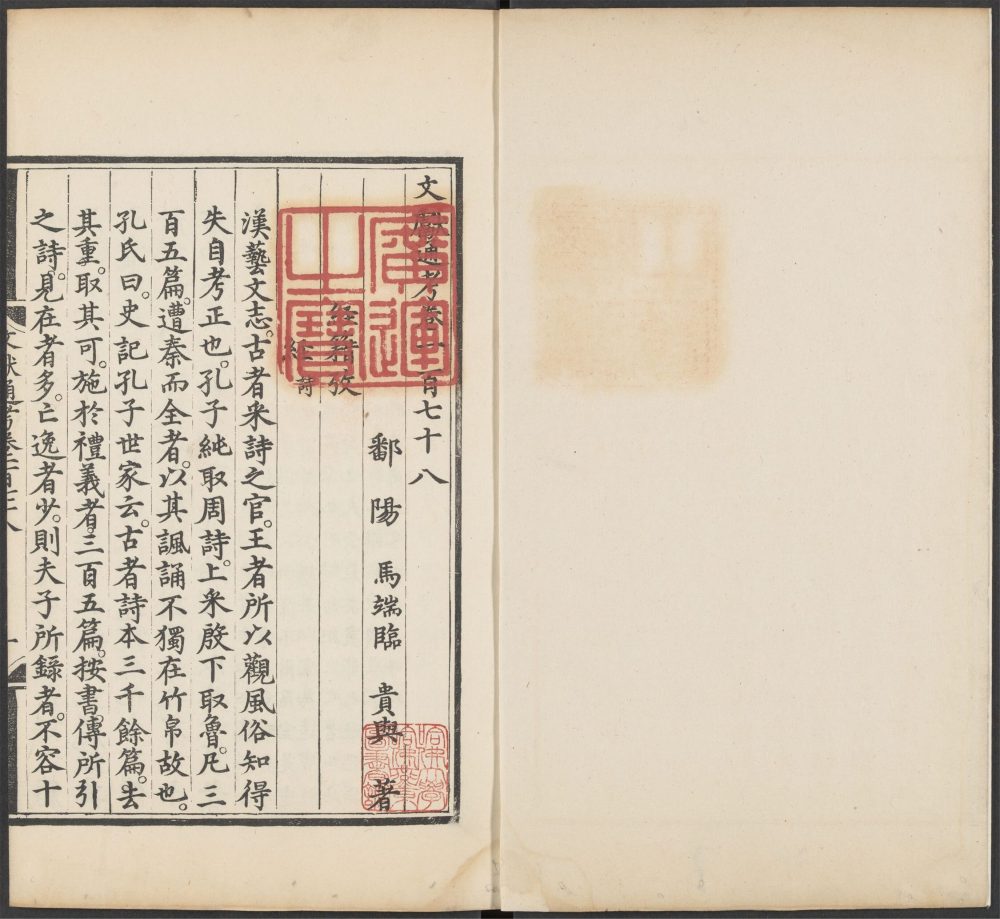 文獻通考卷一百七十八
鄱陽馬端臨貴與著
經籍攷
經 詩
漢藝文志。古者采詩之官。王者所以觀風俗知得
失自考正也。孔子純取周詩。上采殷下取魯。凡三
百五篇。遭秦而全者。以其諷誦不獨在竹帛故也。
孔氏曰。史記孔子世家云。古者詩本三千餘篇。去
其重。取其可。施於禮義者。三百五篇。按書。傳所引
之詩。見在者多。亡逸者少。則夫子所錄者。不容十
廣運
之寶